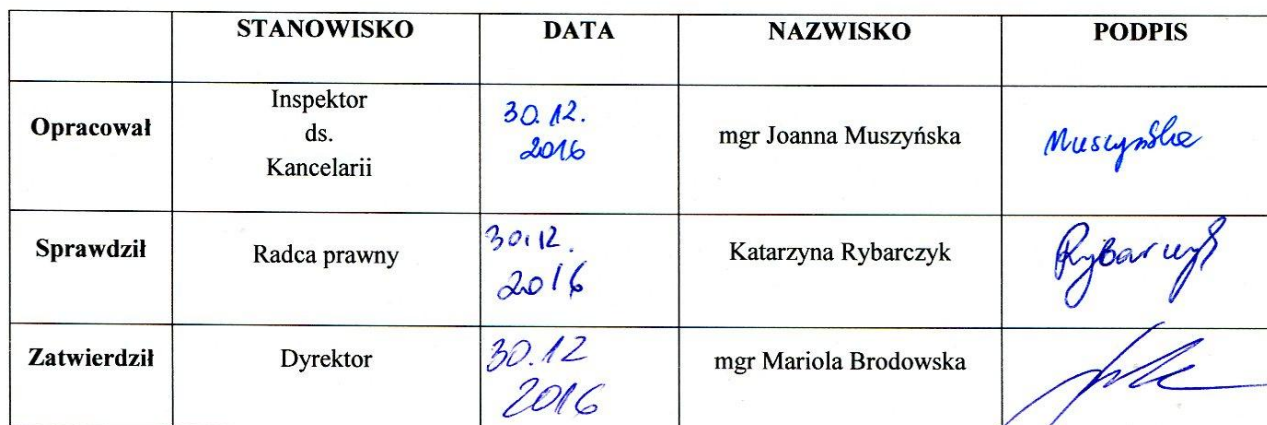 STANOWISKO DATA NAZWISKO PODPIS
Opracował
Inspektor
ds.
Kancelarii
30.12.
2016
mgr Joanna Muszyńska
Muszyńska
Sprawdził
Radca prawny
30.12.
2016
Katarzyna Rybarczyk
Rybarczyk
Zatwierdził
Dyrektor
30.12
2016
mgr Mariola Brodowska